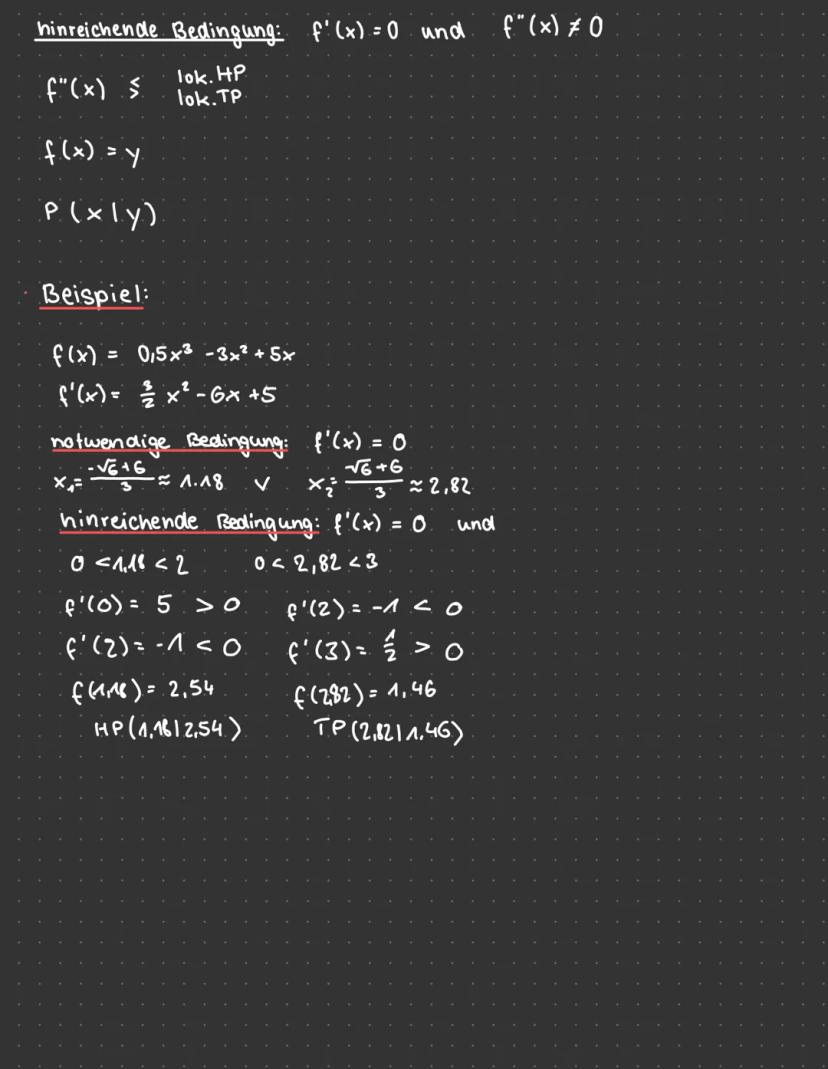 hinreichende Bedingung: f'(x) = 0 und f"(x) ≠ 0
f"(x) ≶ lok. HP
lok. TP
f(x) = y
P(x|y)
Beispiel:
f(x) = 0,5x³ - 3x² + 5x
f'(x) = 3/2 x² - 6x + 5
notwendige Bedingung: f'(x) = 0
x₁ = (-√6+6)/3 ≈ 1.18 ∨ x₂ = (√6+6)/3 ≈ 2,82
hinreichende Bedingung: f'(x) = 0 und
0 < 1,18 < 2 0 < 2,82 < 3
f'(0) = 5 > 0 f'(2) = -1 < 0
f'(2) = -1 < 0 f'(3) = 1/2 > 0
f(1,18) = 2,54 f(2,82) = 1,46
HP(1,18|2,54) TP(2,82|1,46)